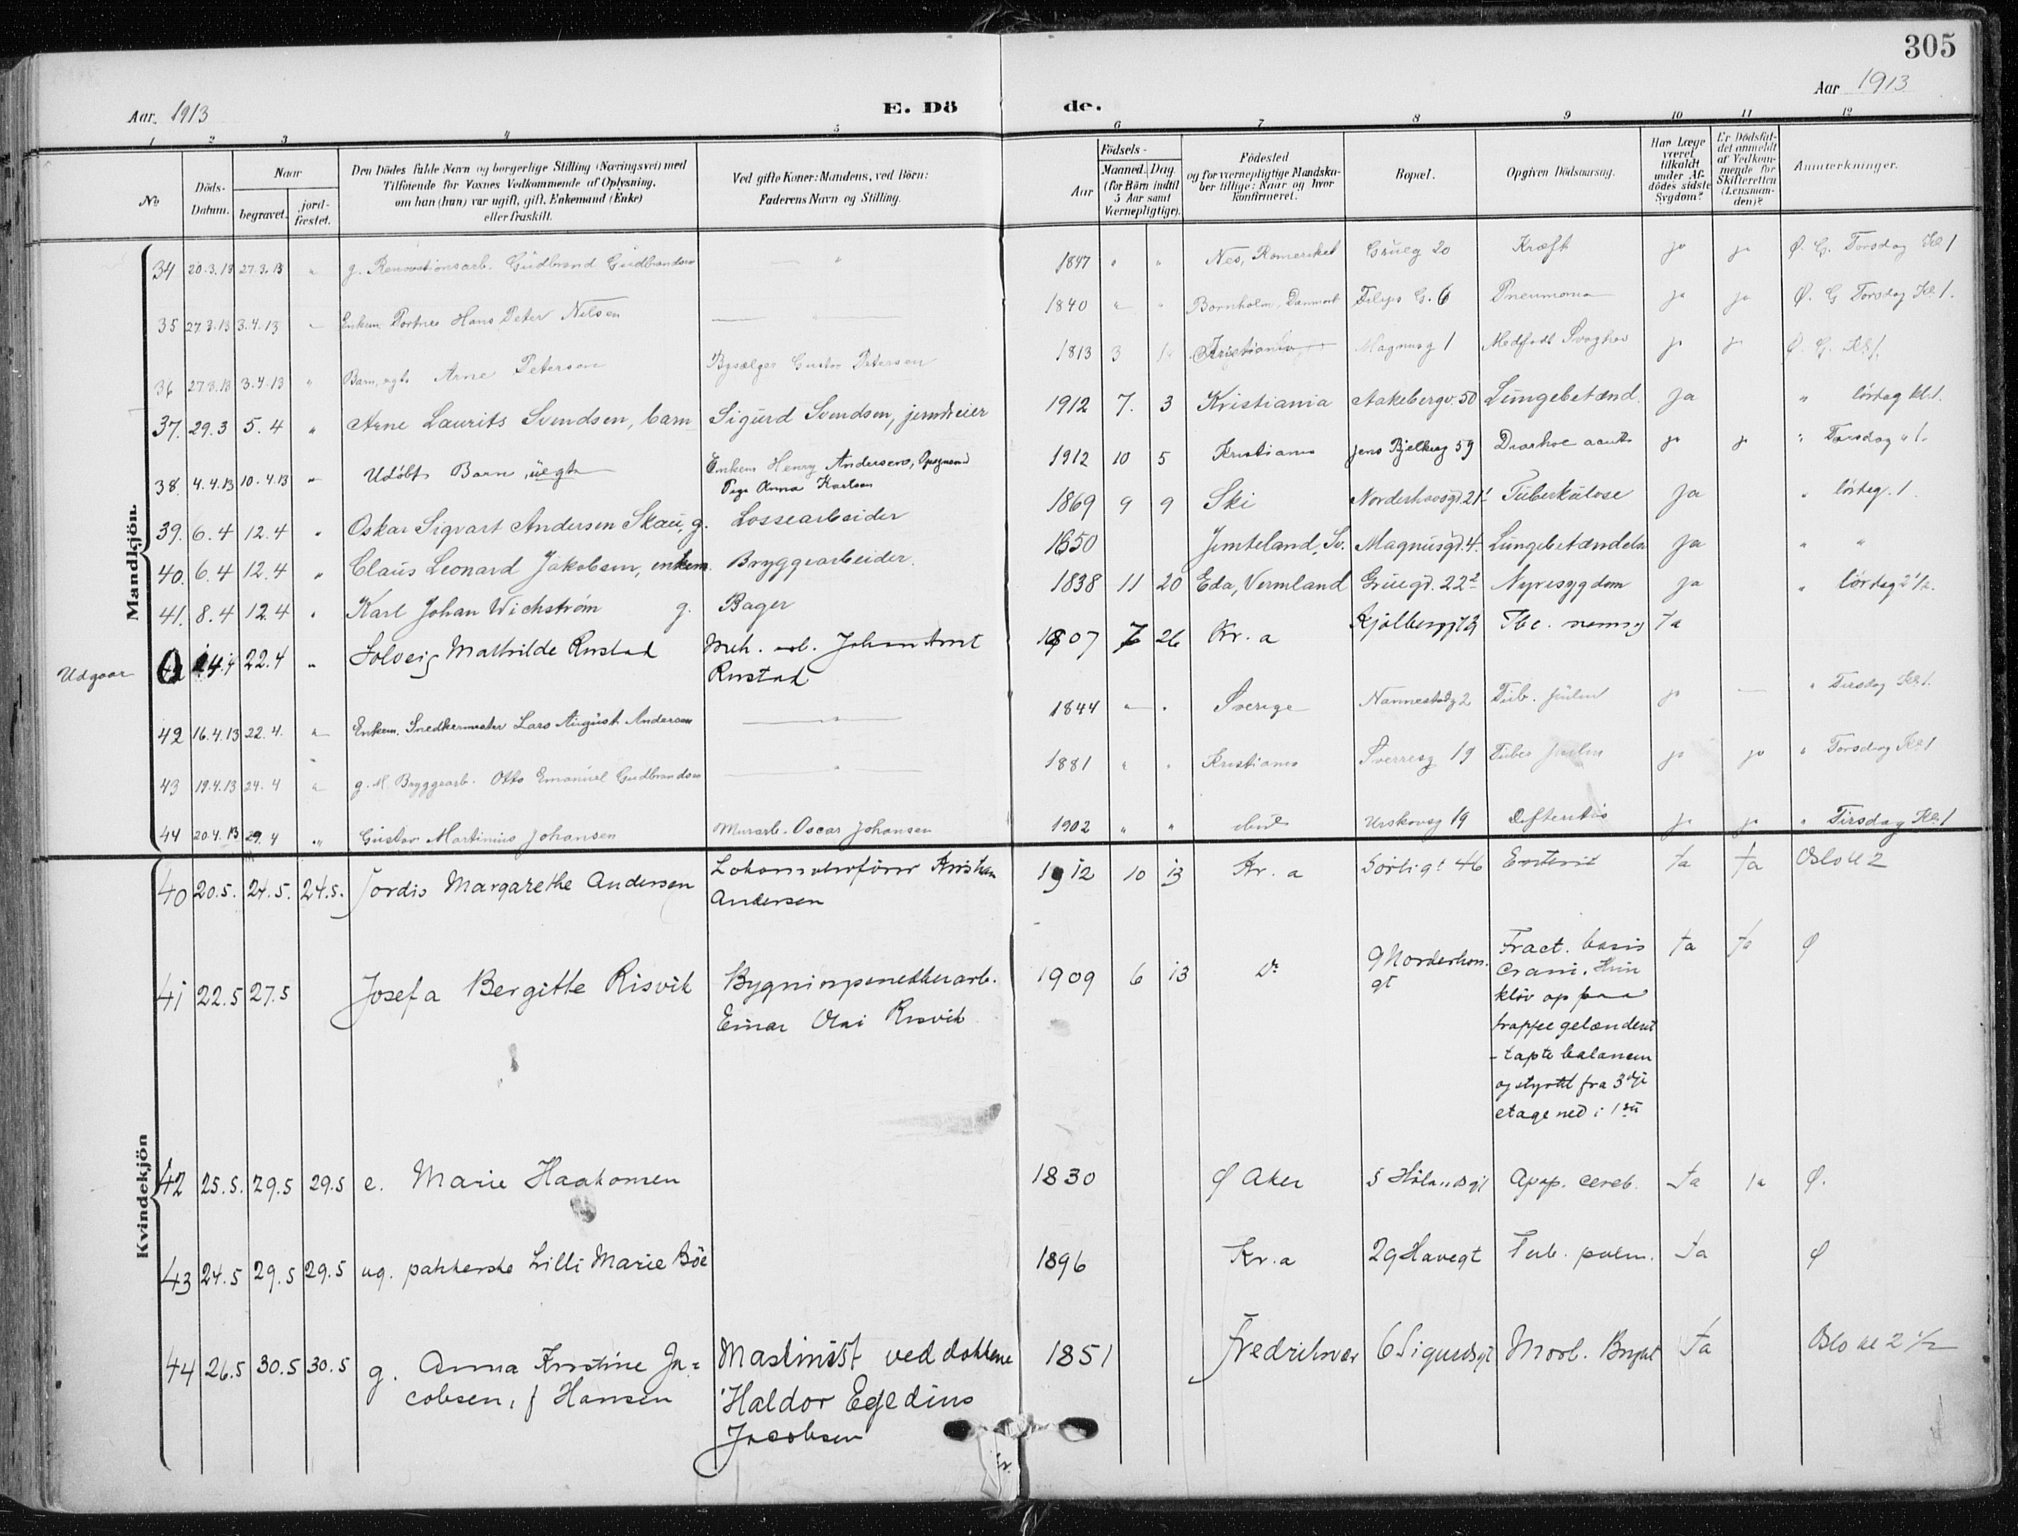 305
Aar 1913
E. Dö
de.
Aar 1913
1 2 3 4 5 6 7 8 9 10 11 12
No
Döds-Datum.
Naar
begravet.
jord-fæstet.
Den Dödes fulde Navn og borgerlige Stilling (Næringsvei) med
Tilföiende for Voxnes Vedkommende af Oplysning,
om han (hun) var ugift, gift, Enkemand (Enke)
eller fraskilt.
Ved gifte Koner: Mandens, ved Börn:
Faderens Navn og Stilling.
Födsels-
Aar
Maaned. Dag.
(for Börn indtil
5 Aar samt
Værnepligtige).
Födested
og for værnepligtige Mandska-
ber tillige: Naar og hvor
konfirmeret.
Bopæl.
Opgiven Dödsaarsag.
Har Læge
været
tilkaldt
under Af-
dödes sidste
Sygdom?
Er Dödsfal-
det anmeldt
af Vedkom-
mende for
Skifteretten
(Lensman-
den)?
Anmærkninger.
Mandkjön.
34 20.3.13 27.3.13 " g. Renovationsarb. Gudbrand Gudbrandsen " 1847 " " Nes, Romeriket Grüeg 20 Kræft ja ja Ø. G. Torsdag Kl 1
35 27.3.13 3.4.13 " Enkem. Portner Hans Peter Nilsen 1840 " " Bornholm, Danmark Filips G. 6 Pneumonia ja ja Ø. G Torsdag Kl 1.
36 27.3.13 3.4.13 " Barn, egte Arne Petersen Bysælger Gustav Petersen 1813 3 Kristiania Magnusg 1 Medfødt Svaghed ja ja Ø. G. Kl 1.
37. 29.3 5.4 " Arne Laurits Svendsen, barn Sigurd Svendsen, jerndreier 1912 7. 3 Kristiania Aakebergv. 50 Lungebetænd. Ja " lørdag kl. 1.
38. 4.4.13 10.4.13 " Udøbt Barn, uegte Enkem Henry Andersens,
Pige Anna Karlsen 1912 10 5 Kristiania Jens Bjelkesg 59 ja ja " Torsdag " 1.
39. 6.4 12.4 " Oskar Sigvart Andersen Skau, g. Lossearbeider 1869 9 9 Ski Norderhovsgd. 21 Tuberkulose Ja " lørdag. 1
40. 6.4 12.4 " Claus Leonard Jakobsen, enkem. Bryggearbeider. 1850 Jemteland, Sv. Magnusgd. 4. Lungebetændelse Ja " "
41. 8.4 12.4 " Karl Johan Wichstrøm g. Bager 1838 11 20 Eda, Vermland Gruegd. 22 Nyresygdom Ja " lördag 2 1/2.
Udgaar 14.4 22.4 " Solveig Mathilde Rustad Mek. arb. Johan Arnt
Rustad 1907 7 26 Kr. a Kjølberggt Tbc. Ja
42 16.4.13 22.4. " Enkem. Snedkermester Lars August Andersen " 1844 " " Sverige Nannestadg 2 Tub. Pulm ja — " Tirsdag Kl 1.
43 19.4.13 24.4 " g. M. Bryggearb. Otto Emanuel Gudbrandsen " 1881 " " Kristiania Sverresg 19 Tuber Pulm ja ja " Torsdag Kl 1
44 20.4.13 29.4 " Gustav Martinius Johansen Murarb. Oscar Johansen 1902 " " Urskovsg 19 Defteritis ja ja " Tirsdag Kl 1
Kvindekjön
40 20.5. 24.5. 24.5. Jordis Margarethe Andersen Lokomotivfører Kristian
Andersen 1912 10 13 Kr. a Sørligt 46 Enterit Ja Ja Oslo kl 2
41 22.5 27.5 Josefa Bergitte Risvik Bygningssnedkerarb.
Einar Olai Risvik 1909 6 13 Do 9 Norderhovs
gt Fract. basis
crani. Hun
kløv op paa
trappegelænderet
- tapte balancen
og styrtet fra 3die
etage ned i 1ste Ja Ja Ø
42 25.5. 29.5 29.5 e. Marie Haakonsen 1830 Ø Aker 5 Hølandsgt Apop. cereb. Ja Ja Ø.
43 24.5 29.5 29.5 ug. pakkerske Lilli Marie Bøe 1896 Kr. a 29 Havegt Tub. pulm. Ja Ø
44 26.5 30.5 30.5 g. Anna Kristine Ja-
cobsen, f Hansen Maskinist ved dokkene
Haldor Egedius
Jacobsen 1851 Fredriksvær 6 Sigurdsgt Morb. Bright Ja Oslo kl 2 1/2